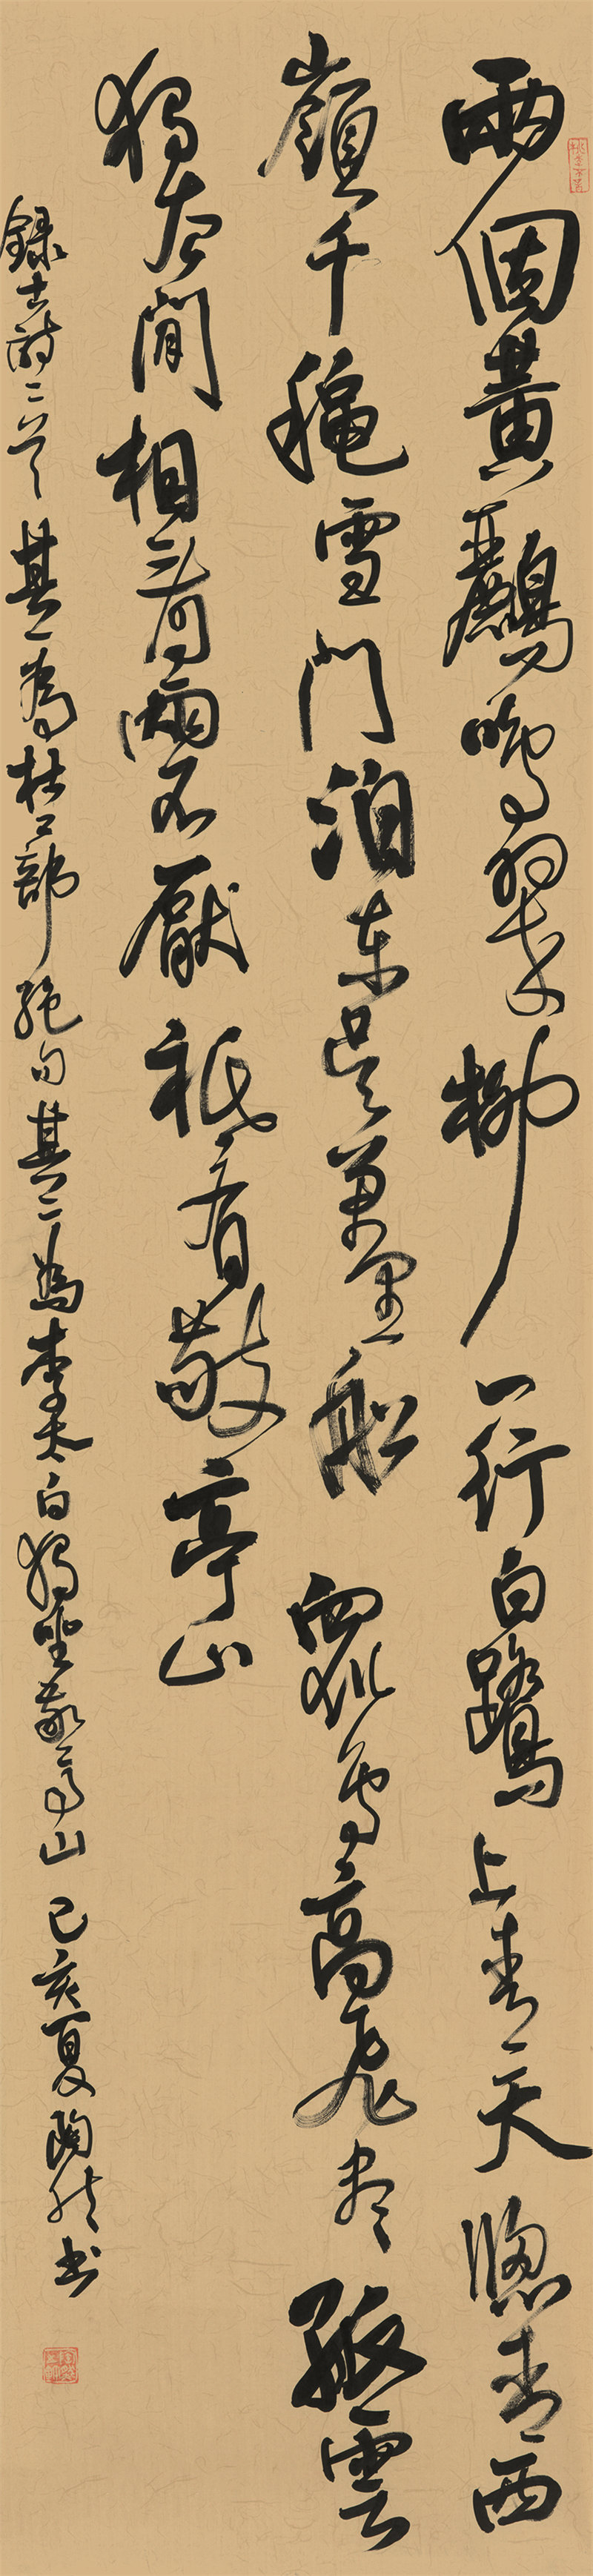 兩個黃鸝鳴翠柳一行白鷺上青天牕青西
嶺千穐雪門泊東吳萬里船眾鳥高飛盡孤雲
獨去閒相看兩不厭祇看敬亭山
錄古詩二首其一為杜工部絕句其二為李太白獨坐敬亭山己亥夏陶然書